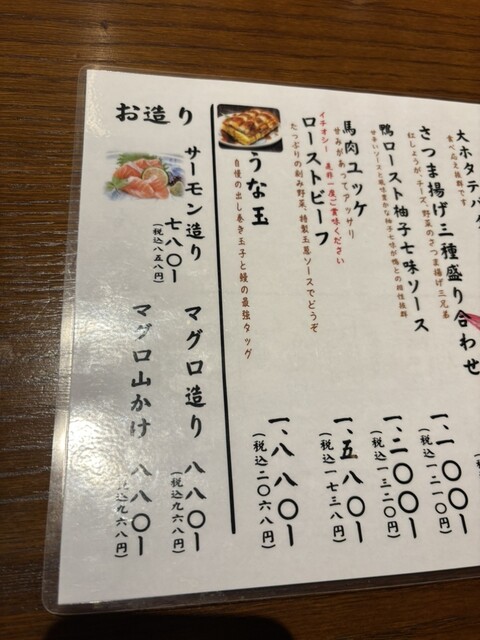 大ホタテバ
食べ応え抜群です
さつま揚げ三種盛り合わせ
紅しょうが、チーズ、野菜のさつま揚げ三兄弟
一、一〇〇ー
(税込一二一〇円)
鴨ロースト柚子七味ソース
甘辛いソースと風味豊かな柚子七味が鴨との相性抜群
一、二〇〇ー
(税込一三二〇円)
馬肉ユッケ
甘みがあってアッサリ
イチオシー 是非一度ご賞味ください
ローストビーフ
たっぷりの刻み野菜、特製玉葱ソースでどうぞ
一、五八〇ー
(税込一七三八円)
うな玉
自慢の出し巻き玉子と鰻の最強タッグ
一、八八〇ー
(税込二〇六八円)
お造り
サーモン造り
七八〇ー
(税込八五八円)
マグロ造り 八八〇ー
(税込九六八円)
マグロ山かけ 八八〇ー
税込九六八円)